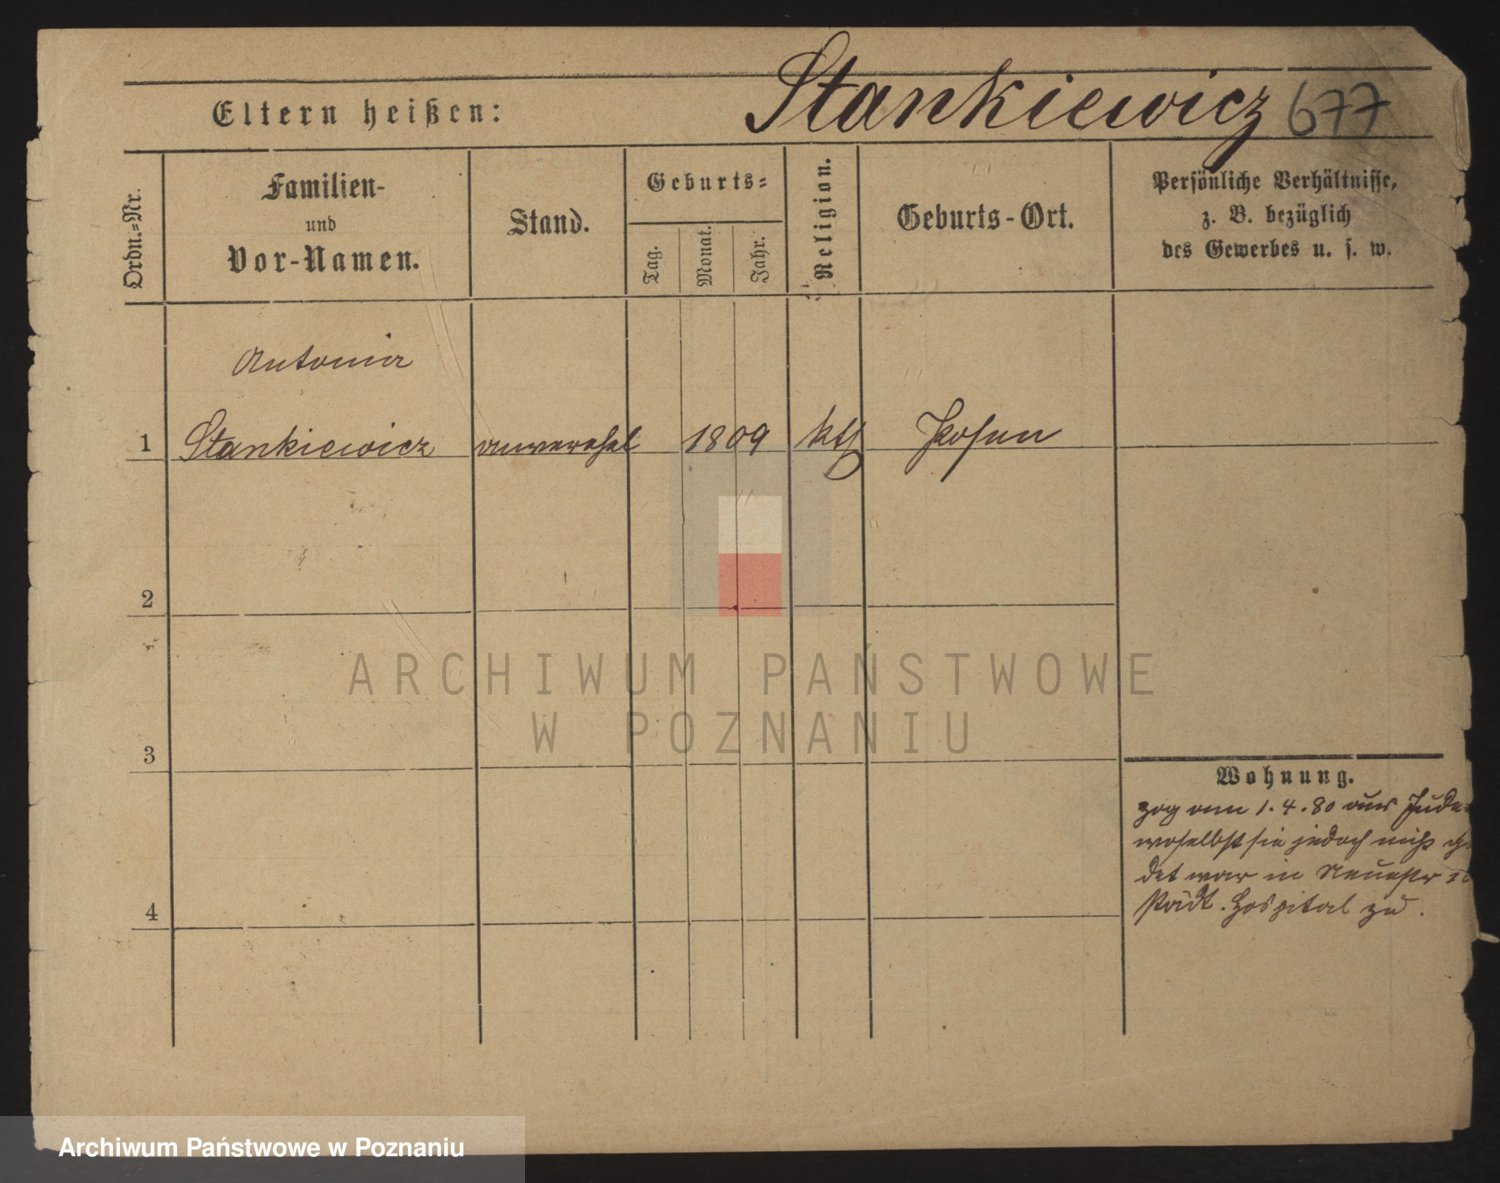 Eltern heißen: Stankiewicz 677
Ordn.=Nr.
Familien-
und
Vor-Namen.
Stand.
Geburts=
Tag.
Monat.
Jahr.
Religion.
Geburts-Ort.
Persönliche Verhältnisse,
z. B. bezüglich
des Gewerbes u. s. w.
Antonia
1 Stankiewicz unverehel 1809 kth Posen
2
ARCHIWUM PAŃSTWOWE
W POZNANIU
3
4
Wohnung.
zog am 1.4.80 aus
woselbst sie jedoch
det war in Neuestr
städt. Hospital zu.
Archiwum Państwowe w Poznaniu